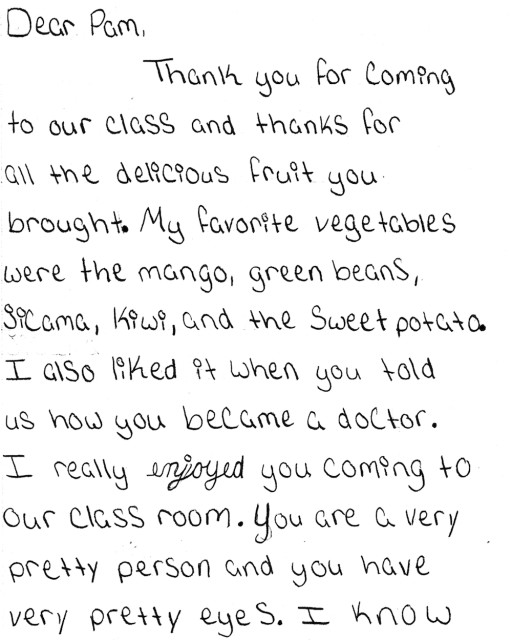 Dear Pam,
Thank you for coming
to our class and thanks for
all the delicious fruit you
brought. My favorite vegetables
were the mango, green beans,
Sicama, kiwi, and the sweet potato.
I also liked it when you told
us how you became a doctor.
I really enjoyed you coming to
our class room. You are a very
pretty person and you have
very pretty eyes. I know